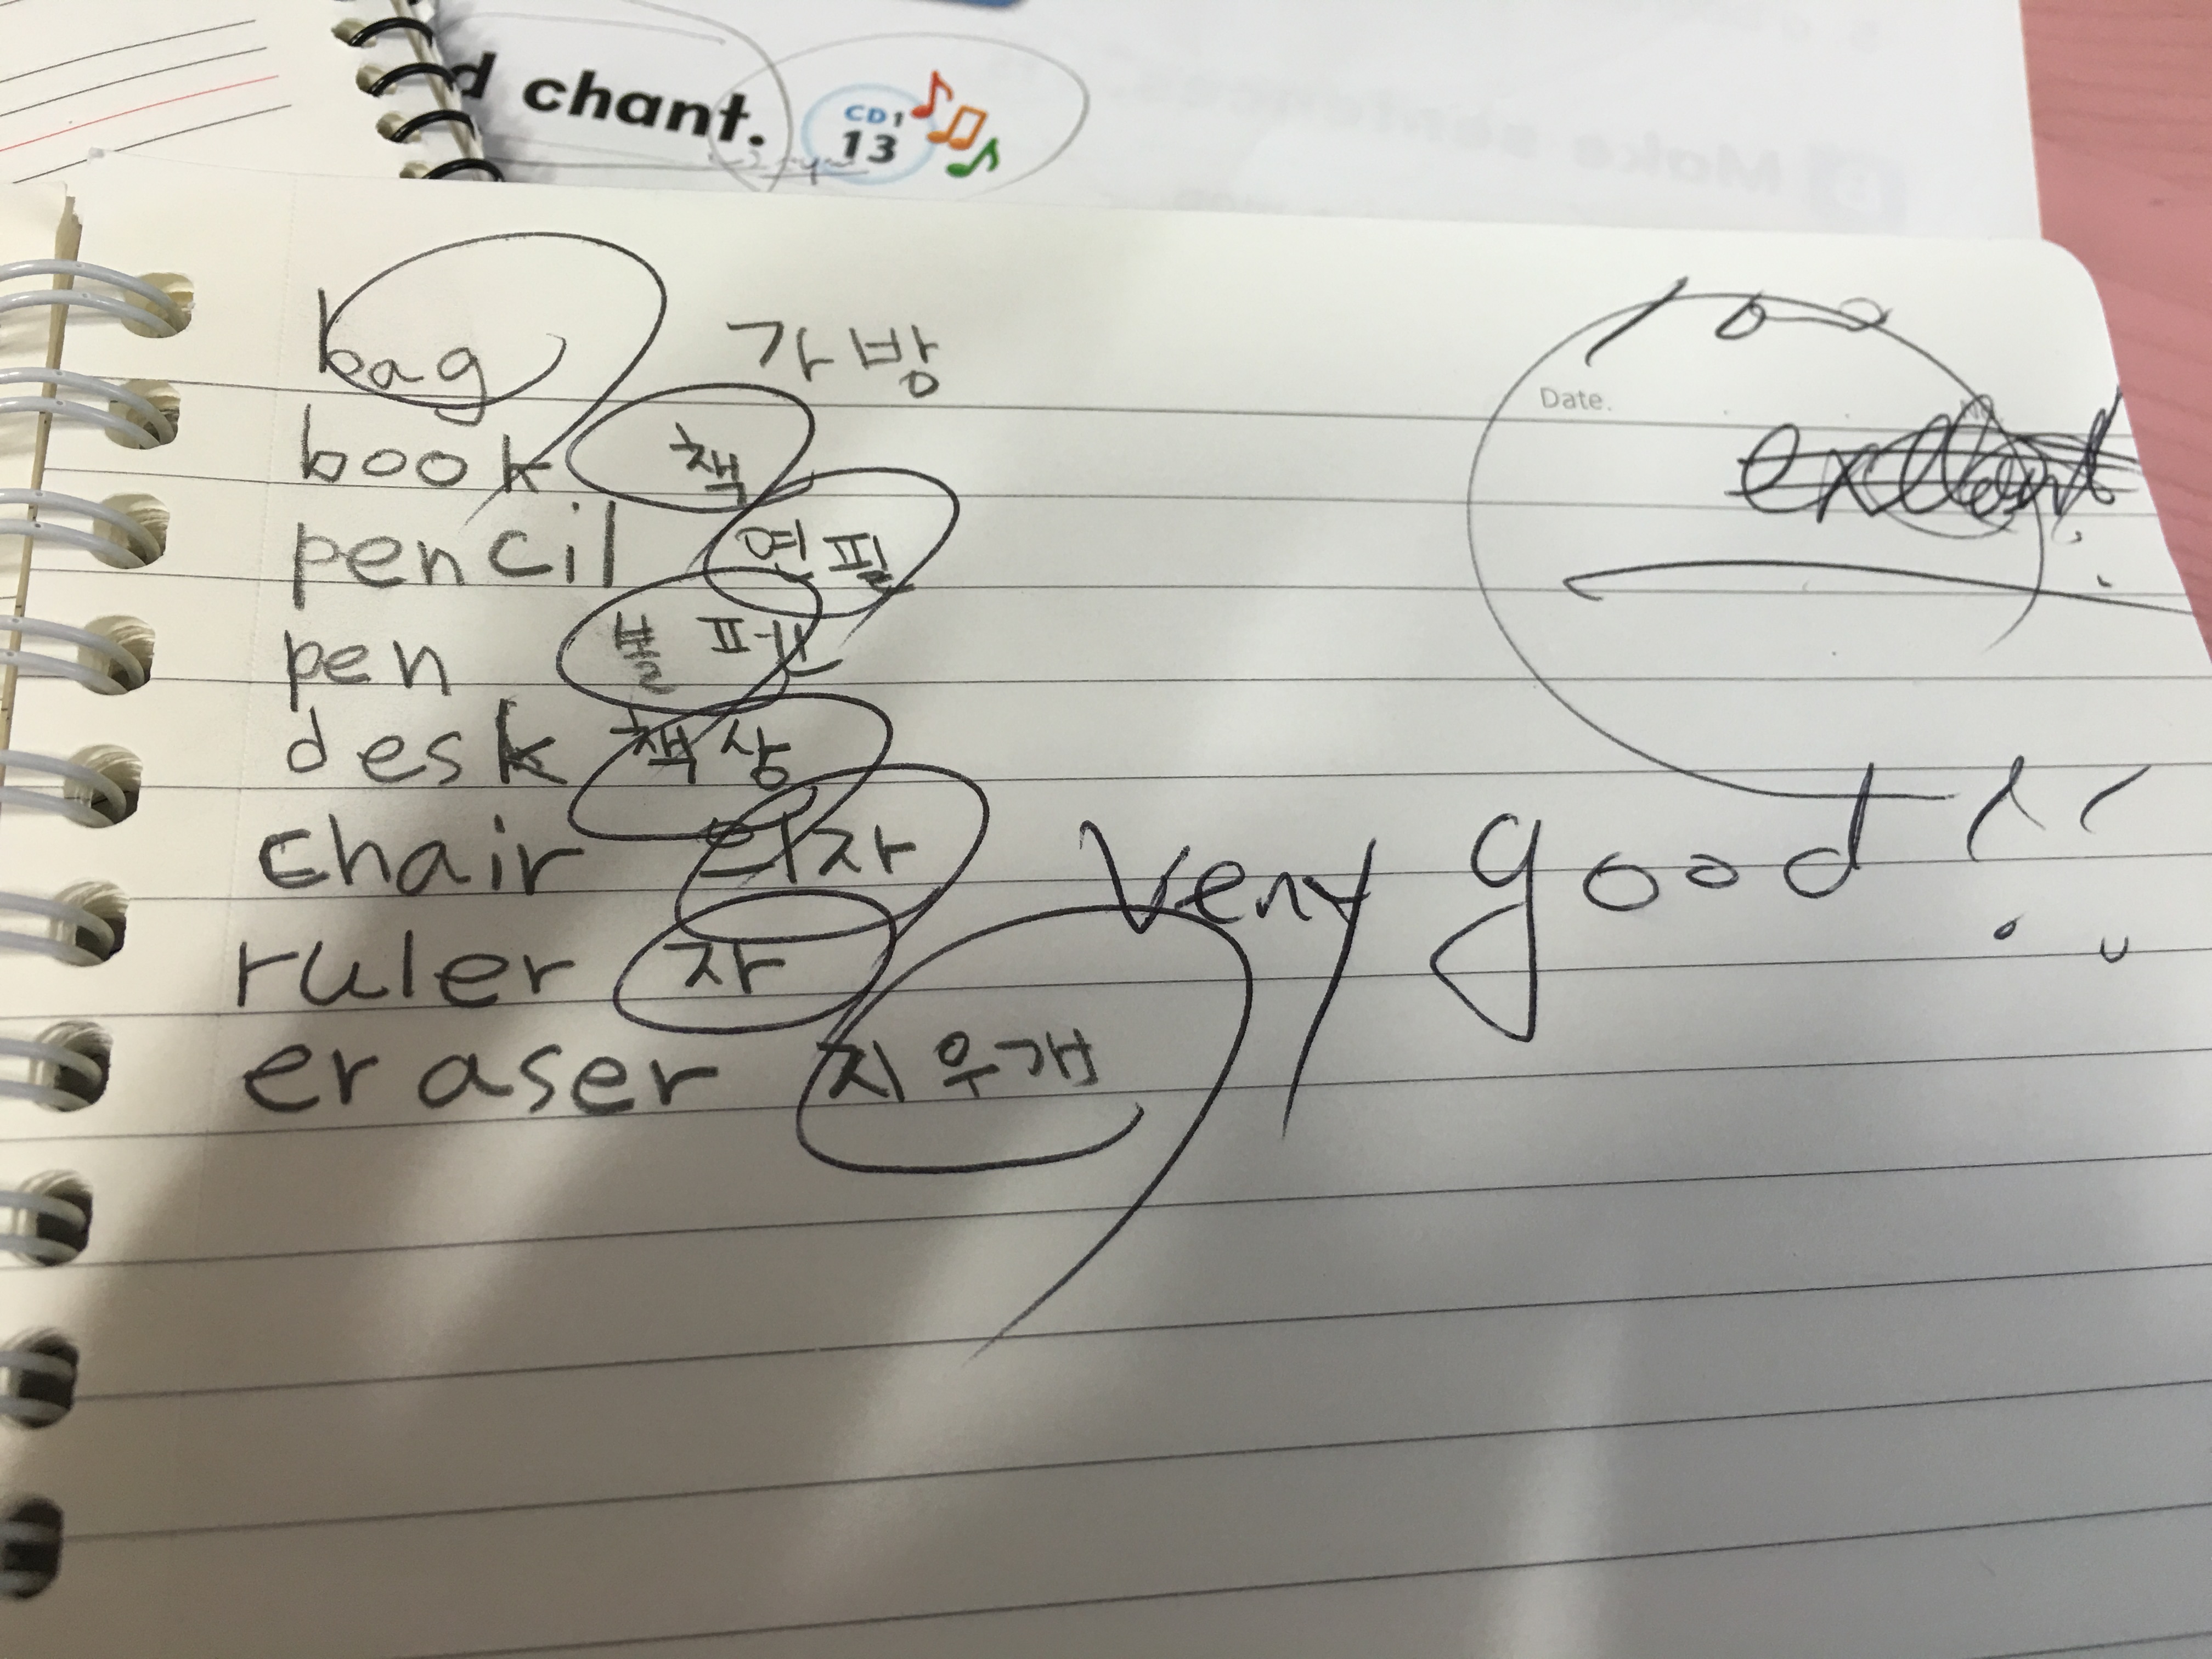 d chant.
CD1
13
100
bag 가방
Date.
No.
book 책
pencil 연필
pen 볼펜
desk 책상
chair 의자
very good!!
ruler 자
eraser 지우개